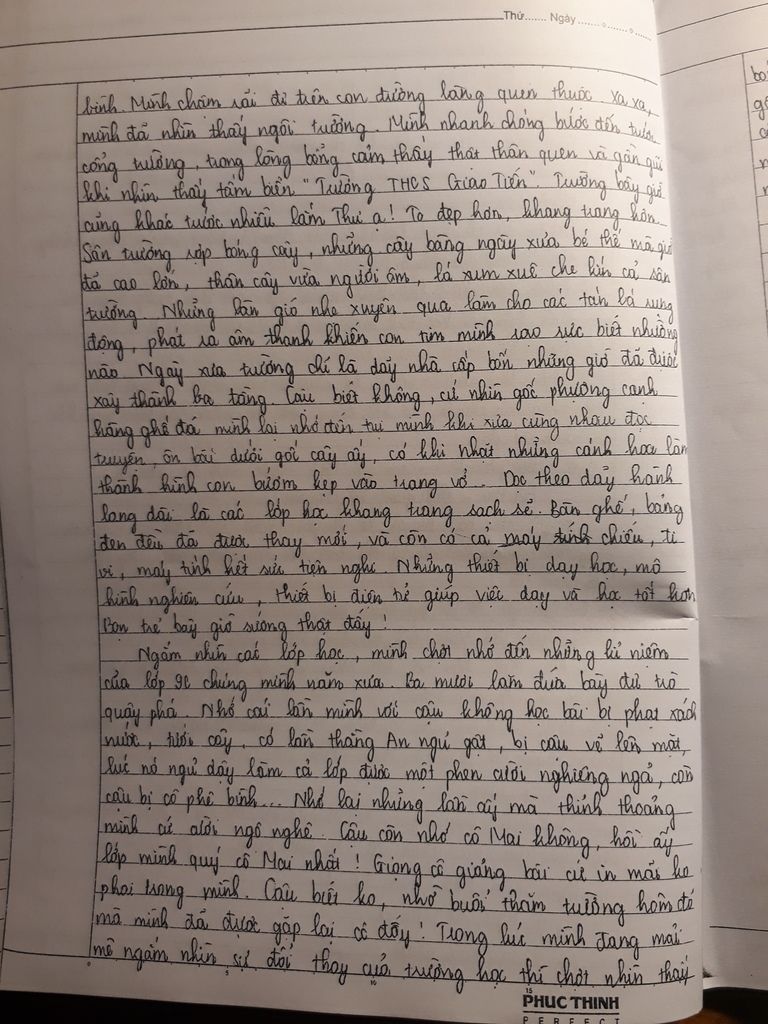 Thứ....... Ngày.......
bình. Mình chậm rãi đi trên con đường làng quen thuộc. Xa xa,
mình đã nhìn thấy ngôi trường. Mình nhanh chóng bước đến trước
cổng trường, trong lòng bỗng cảm thấy thật thân quen và gần gũi
khi nhìn thấy tấm biển "Trường THCS Giao Tiến". Trường bây giờ
cũng khác trước nhiều lắm Thư ạ! To đẹp hơn, khang trang hơn.
Sân trường rợp bóng cây, những cây bàng ngày xưa bé thế mà giờ
đã cao lớn, thân cây vừa người ôm, lá xum xuê che kín cả sân
trường. Những làn gió nhẹ xuyên qua làm cho các tán lá rung
động, phát ra âm thanh khiến con tim mình xao xuyến biết nhường
nào. Ngày xưa trường chỉ là dãy nhà cấp bốn nhưng giờ đã được
xây thành ba tầng. Cậu biết không, cứ nhìn gốc phượng cạnh
hàng ghế đá mình lại nhớ đến tụi mình khi xưa cùng nhau đọc
truyện, ôn bài dưới gốc cây ấy, có khi nhặt những cánh hoa làm
thành hình con bướm kẹp vào trang vở. Dọc theo dãy hành
lang dài là các lớp học khang trang sạch sẽ. Bàn ghế, bảng
đen đều đã được thay mới, và còn có cả máy chiếu, ti
vi, máy tính hết sức tiện nghi. Những thiết bị dạy học, mô
hình nghiên cứu, thiết bị điện tử giúp việc dạy và học tốt hơn
Bọn trẻ bây giờ sướng thật đấy!
Ngắm nhìn các lớp học, mình chợt nhớ đến những kỉ niệm
của lớp 9E chúng mình năm xưa. Ba mươi lăm đứa bày đủ trò
quậy phá. Nhớ cái lần mình với cậu không học bài bị phạt xách
nước, tưới cây, có lần thằng An ngủ gật, bị cậu vẽ lên mặt,
lúc nó ngủ dậy làm cả lớp được một phen cười nghiêng ngả, còn
cậu bị cô phê bình... Nhớ lại những lần ấy mà thỉnh thoảng
mình cứ cười ngô nghê. Cậu còn nhớ cô Mai không, hồi ấy
lớp mình quý cô Mai nhất! Giọng cô giảng bài cứ in mãi ko
phai trong mình. Cậu biết ko, nhờ buổi thăm trường hôm đó
mà mình đã được gặp lại cô đấy! Trong lúc mình đang mải
mê ngắm nhìn sự đổi thay của trường học thì chợt nhìn thấy
PHUC THINH
PERFECT